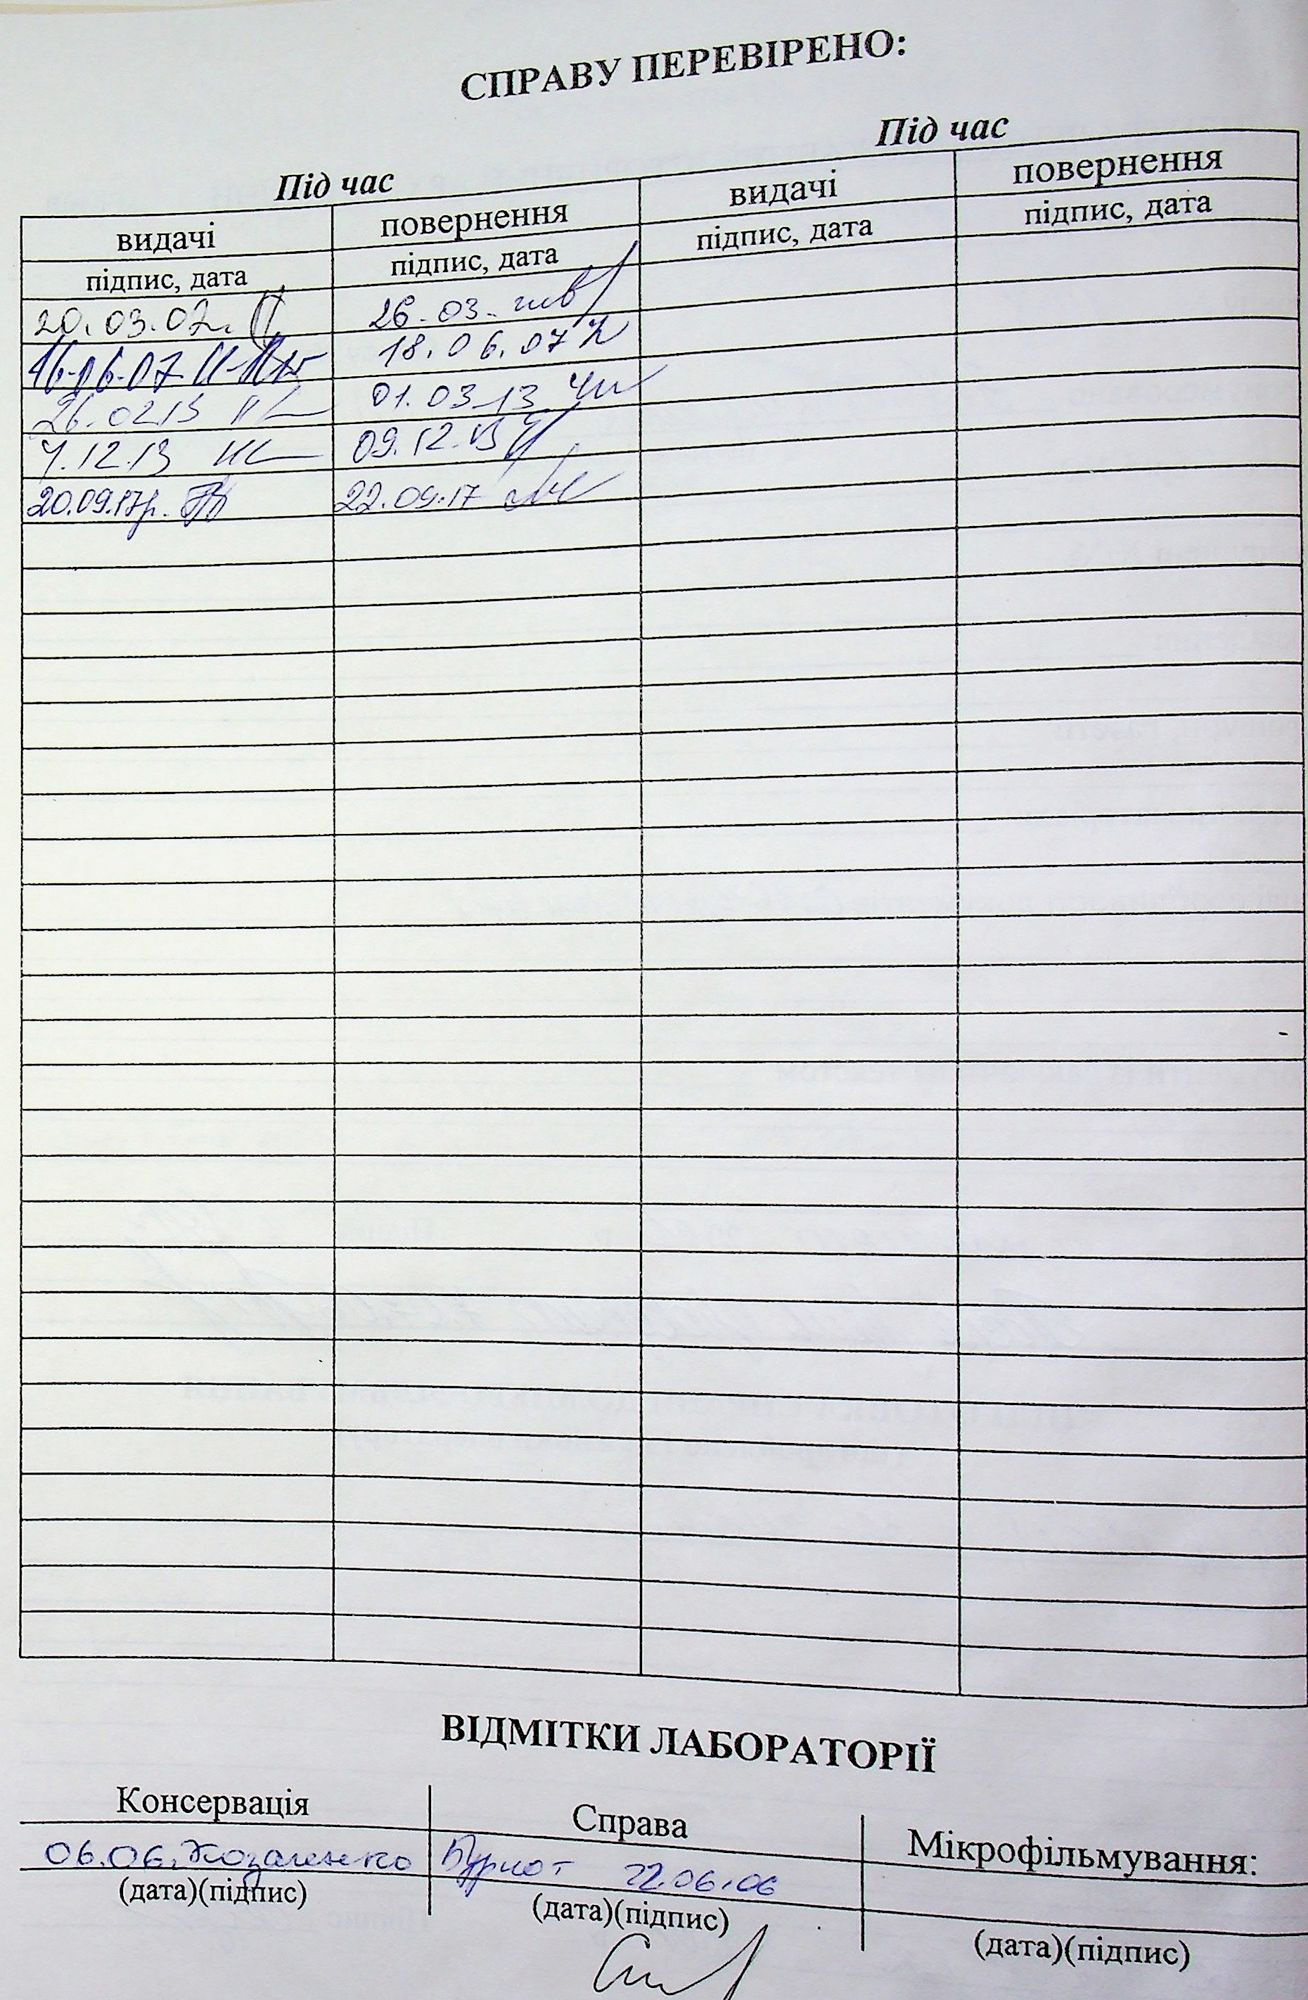 СПРАВУ ПЕРЕВІРЕНО:
Під час Під час
видачі повернення видачі повернення
підпис, дата підпис, дата підпис, дата підпис, дата
20.03.07 26.03.
16.06.07 18.06.07
26.02.13 01.03.13
4.12.13 09.12.13
20.09.17р. 22.09.17
ВІДМІТКИ ЛАБОРАТОРІЇ
Консервація Справа Мікрофільмування:
06.06. Козаченко 22.06.06
(дата)(підпис) (дата)(підпис) (дата)(підпис)